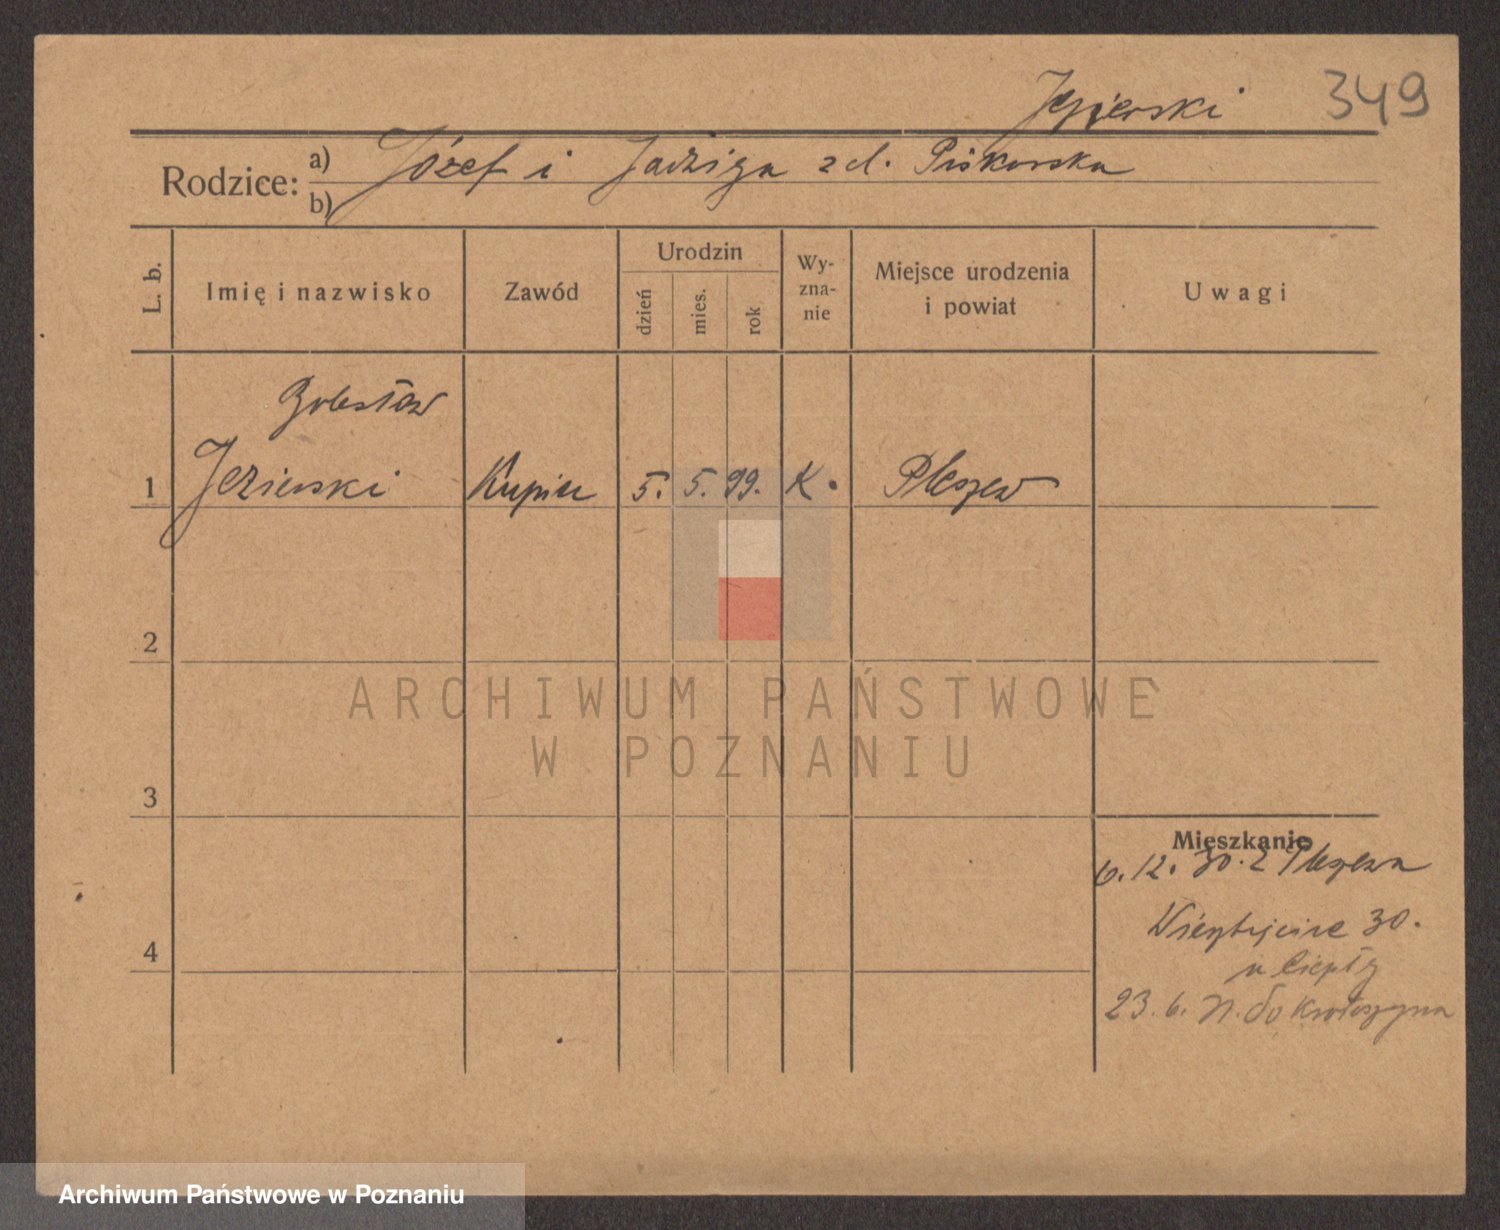 Jezierski 349
Rodzice: a) Józef i Jadwiga z d. Piskorska
b)
L. b. Imię i nazwisko Zawód Urodzin dzień mies. rok Wy-zna-nie Miejsce urodzenia i powiat Uwagi
Bolesław
1 Jezierski Kupiec 5. 5. 99. K. Pleszew
2
ARCHIWUM PAŃSTWOWE
W POZNANIU
3
Mieszkanie
6. 12. 30. z Pleszewa
30.
u
4
23. 6. do Krotoszyna
Archiwum Państwowe w Poznaniu